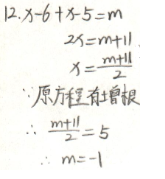 12. x-6+x-5=m
2x=m+11
x=\frac{m+11}{2}
∵原方程有增根
∴ \frac{m+11}{2}=5
∴ m=-1